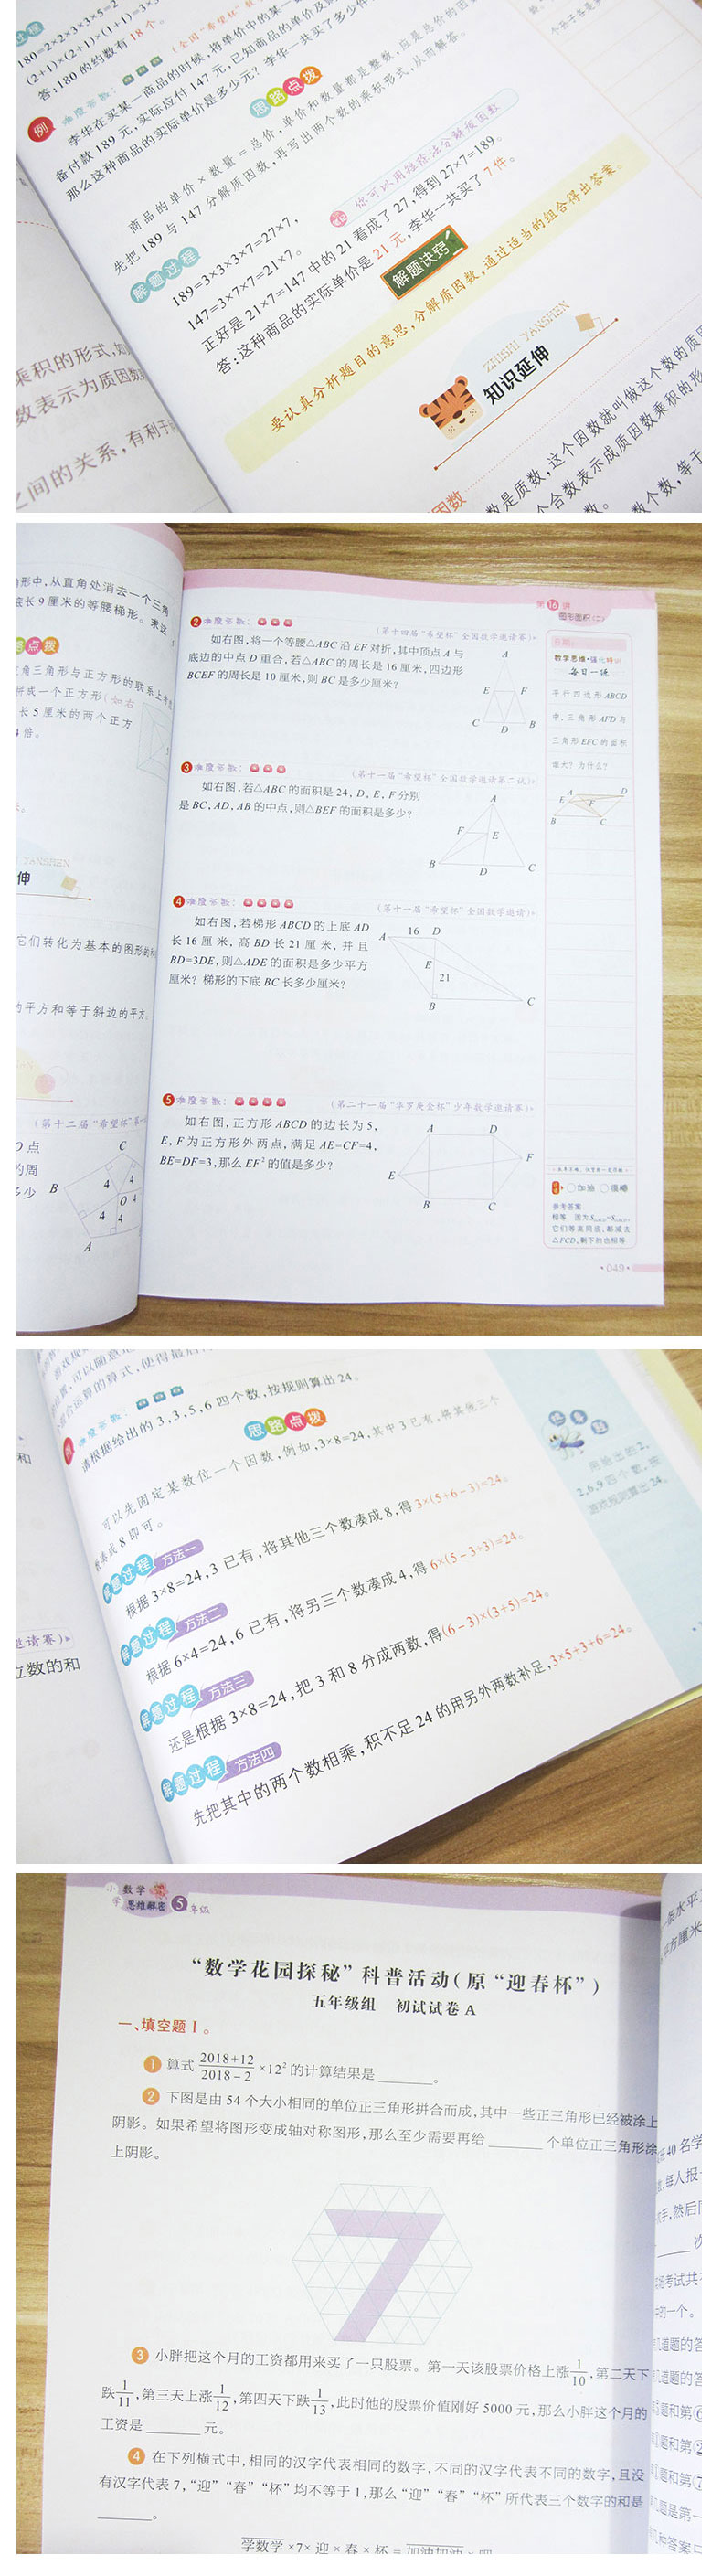 180=2×2×3×3×5=2
(2+1)×(2+1)×(1+1)=3×3
答:180 的约数有 18 个。
例
难度系数:
李华在买某一商品的时候,将单价中的某一
备付款 189 元,实际应付 147 元,已知商品的单价及
那么这种商品的实际单价是多少元? 李华一共买了多少件
思路点拨
商品的单价×数量=总价,单价和数量都是整数,应是总价的因
先把 189 与 147 分解质因数,再写出两个数的乘积形式,从而解答。
解题过程
你可以用短除法分解质因数
189=3×3×3×7=27×7,
147=3×7×7=21×7。
正好是 21×7=147 中的 21 看成了 27,得到 27×7=189。
答:这种商品的实际单价是 21 元,李华一共买了 7 件。
解题诀窍
要认真分析题目的意思,分解质因数,通过适当的组合得出答案。
ZHISHI YANSHEN
知识延伸
乘积的形式,如
数表示为质因数
之间的关系,有利于
因数
数是质数,这个因数就叫做这个数的质
个合数表示成质因数乘积的形
数个数,等于
形中,从直角处消去一个三角
底长 9 厘米的等腰梯形。求这
点拨
角三角形与正方形的联系上考虑
拼成一个正方形(如右
长 5 厘米的两个正方
4 倍。
YANSHEN
伸
它们转化为基本的图形的
的平方和等于斜边的平方。
(第十二届“希望杯”第一
O 点
的周
多少
B
C
4
4
O
4
4
4
A
第 16 讲
图形面积(二)
2 难度系数:
(第十四届“希望杯”全国数学邀请赛)
如右图,将一个等腰△ABC 沿 EF 对折,其中顶点 A 与
底边的中点 D 重合,若△ABC 的周长是 16 厘米,四边形
BCEF 的周长是 10 厘米,则 BC 是多少厘米?
A
E
F
C
D
B
3 难度系数:
(第十一届“希望杯”全国数学邀请赛第二试)
如右图,若△ABC 的面积是 24, D, E, F 分别
是 BC, AD, AB 的中点,则△BEF 的面积是多少?
A
F
E
B
D
C
4 难度系数:
(第十一届“希望杯”全国数学邀请)
如右图,若梯形 ABCD 的上底 AD
长 16 厘米, 高 BD 长 21 厘米, 并且
BD=3DE,则△ADE 的面积是多少平方
厘米? 梯形的下底 BC 长多少厘米?
A
16
D
E
21
B
C
5 难度系数:
(第二十一届“华罗庚金杯”少年数学邀请赛)
如右图,正方形 ABCD 的边长为 5,
E, F 为正方形外两点,满足 AE=CF=4,
BE=DF=3,那么 EF² 的值是多少?
A
D
F
E
B
C
日期:
数学思维·强化特训
每日一练
平行四边形 ABCD
中,三角形 AFD 与
三角形 EFC 的面积
谁大? 为什么?
A
D
E
F
B
C
加油
很棒
参考答案:
它们等高同底,都减去
△FCD,剩下的也相等
·049·
难度系数:
请根据给出的 3, 3, 5, 6 四个数,按规则算出 24。
思路点拨
可以先固定某数位一个因数,例如,3×8=24,其中 3 已有,将其他三个
数凑成 8 即可。
解题过程 方法一
根据 3×8=24,3 已有,将其他三个数凑成 8,得 3×(5+6-3)=24。
解题过程 方法二
根据 6×4=24,6 已有,将另三个数凑成 4,得 6×(5-3÷3)=24。
解题过程 方法三
还是根据 3×8=24,把 3 和 8 分成两数,得(6-3)×(3+5)=24。
解题过程 方法四
先把其中的两个数相乘,积不足 24 的用另外两数补足,3×5+3+6=24。
用给出的 2,
2,6,9 四个数,按
游戏规则算出 24。
邀请赛)
立数的和
小学
数学
思维解密
5 年级
“数学花园探秘”科普活动(原“迎春杯”)
五年级组 初试试卷 A
一、填空题 Ⅰ。
1 算式 (2018+12)/(2018-2) ×12² 的计算结果是 ______。
2 下图是由 54 个大小相同的单位正三角形拼合而成,其中一些正三角形已经被涂上
阴影。如果希望将图形变成轴对称图形,那么至少需要再给 ______ 个单位正三角形涂
上阴影。
3 小胖把这个月的工资都用来买了一只股票。第一天该股票价格上涨 1/10,第二天下
跌 1/11,第三天上涨 1/12,第四天下跌 1/13,此时他的股票价值刚好 5000 元,那么小胖这个月的
工资是 ______ 元。
4 在下列横式中,相同的汉字代表相同的数字,不同的汉字代表不同的数字,且没
有汉字代表 7,“迎”“春”“杯”均不等于 1,那么“迎”“春”“杯”所代表三个数字的和是
______。
学数学 ×7× 迎 × 春 × 杯 = 加油加油 ×
一条水平
平方厘米
40 名学
每人报
手,然后
次
场考试共
中的一个。
道题的答
道题的答
题和第⑥
题和第②
题和第⑦
题是第一
种答案